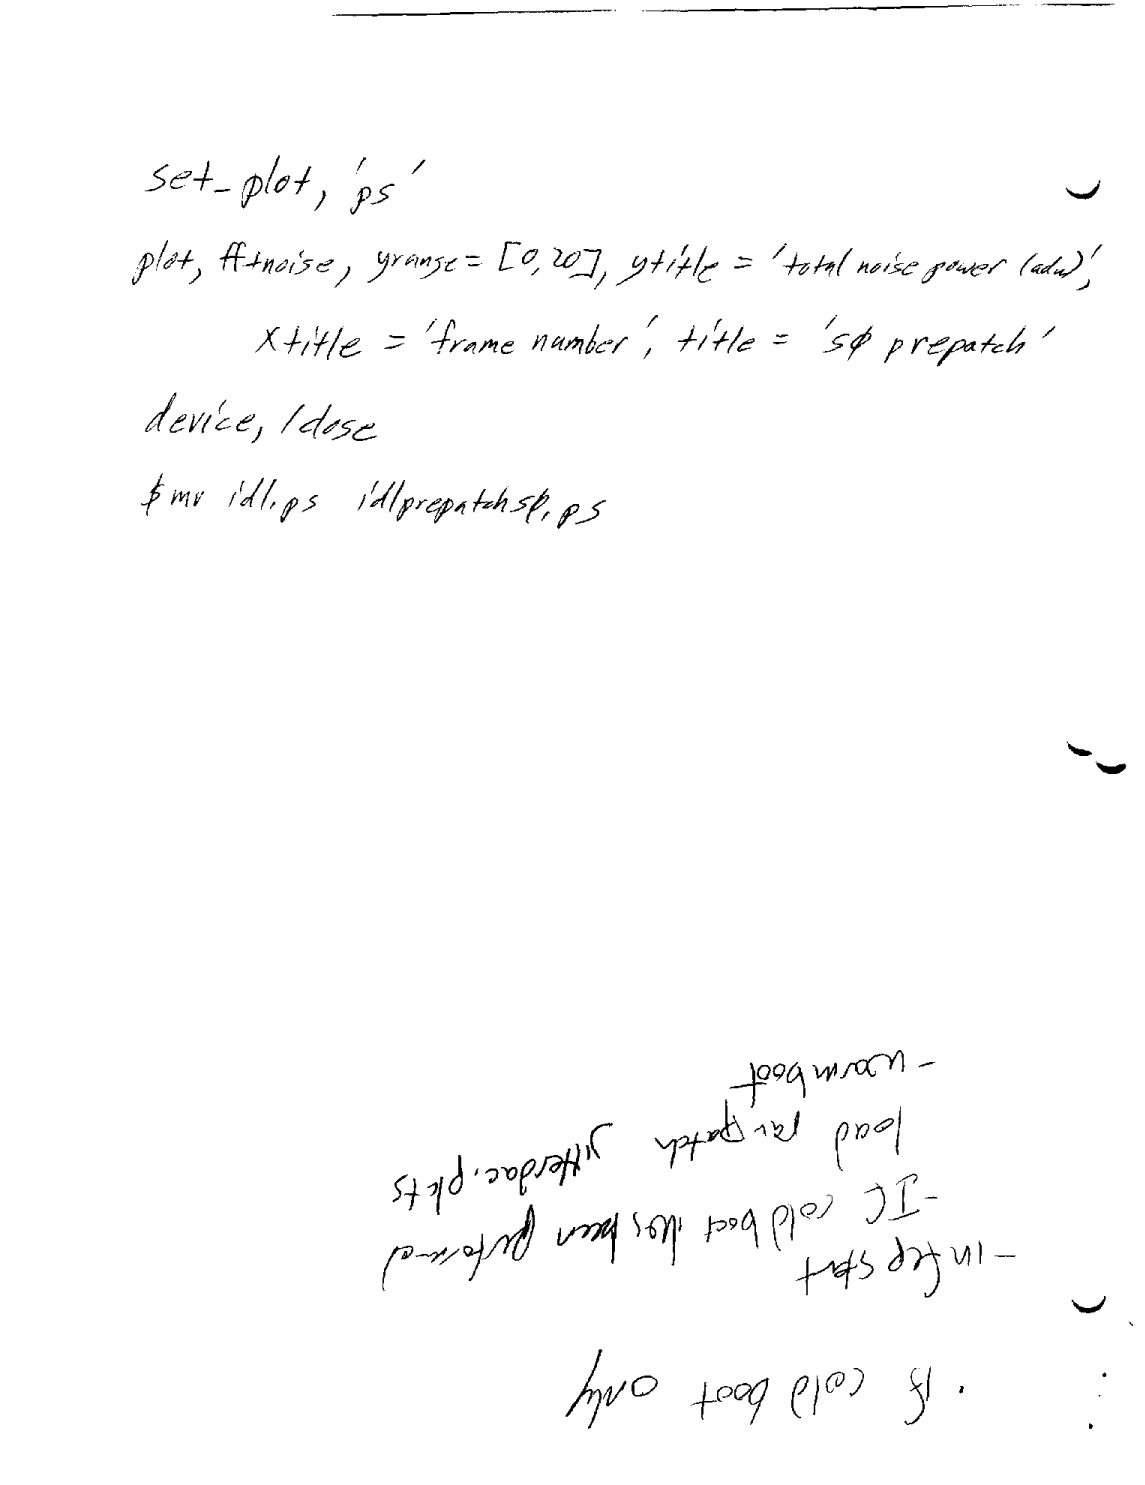 set_plot, 'ps'
plot, fftnoise, yrange = [0,20], ytitle = 'total noise power (adu)',
xtitle = 'frame number', title = 'sφ prepatch'
device, /close
$ mv idl.ps idlprepatchsφ.ps
. If cold boot only
- in fep start
- IC cold boot has been performed
load patch jitterdac.pkts
- warmboot